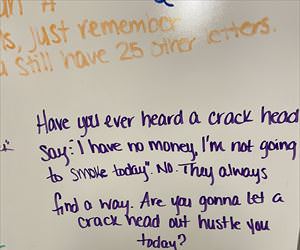 A
just remember
still have 25 other letters.
Have you ever heard a crack head
say: "I have no money, I'm not going
to smoke today". No. They always
find a way. Are you gonna let a
crack head out hustle you
today?